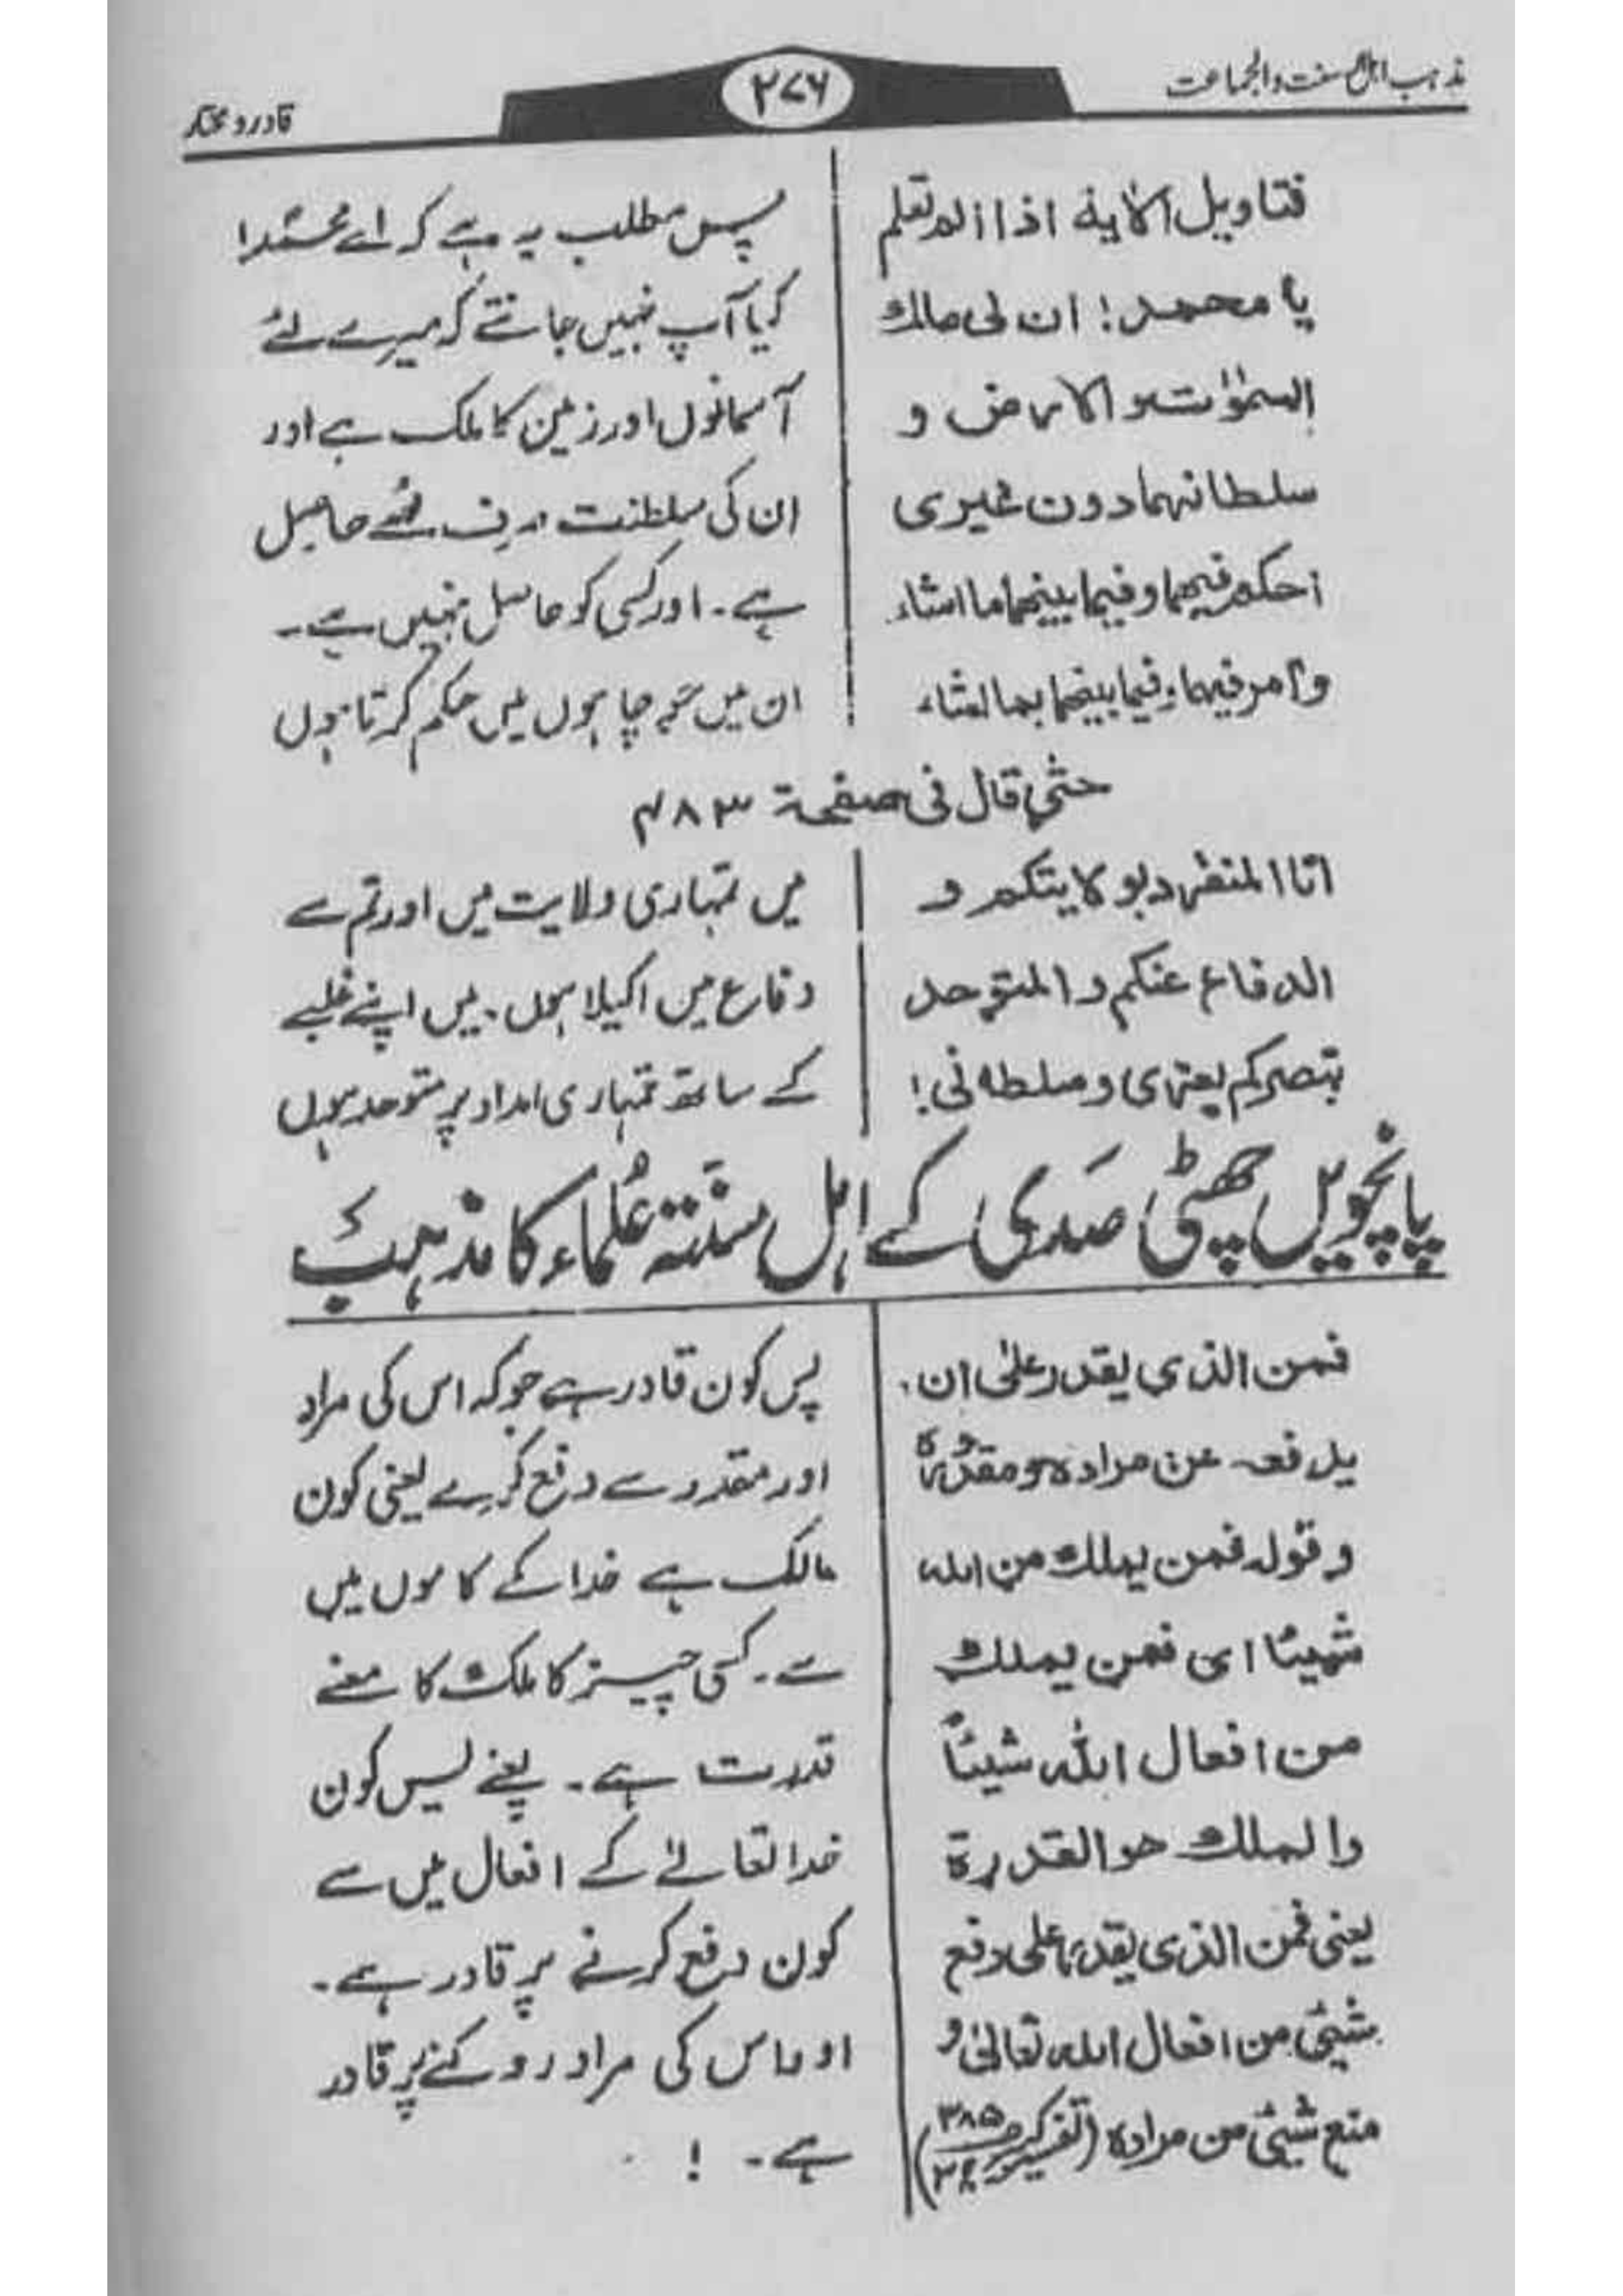 مذہب اہل سنت والجماعت
۲۷۶
قادر و مختار
فتاویل الایۃ اذا الم تعلم
یا محمد! ان لی مالك
السمٰوٰت والارض و
سلطانہما دون غیری
احکم فیہما و فیما بینہما ما اشاء
و آمر فیہما و فیما بینہما بما اشاء
پس مطلب یہ ہے کہ اے محمد!
کیا آپ نہیں جانتے کہ میرے لئے
آسمانوں اور زمین کا ملک ہے اور
ان کی سلطنت صرف مجھے حاصل
ہے۔ اور کسی کو حاصل نہیں ہے۔
ان میں جو چاہوں میں حکم کرتا ہوں
حتٰی قال فی صفحۃ ۴۸۳
انا المنفرد بولایتکم و
الدفاع عنکم والمتوحد
بنصرکم بعزی و سلطانی!
میں تمہاری ولایت میں اور تم سے
دفاع میں اکیلا ہوں۔ میں اپنے غلبے
کے ساتھ تمہاری امداد پر متوحد ہوں
پانچویں چھٹی صدی کے اہل سنتہ علماء کا مذہب
فمن الذی یقدر علیٰ ان
یدفعہ عن مرادہ و مقدورہ
و قولہ فمن یملك من اللہ
شیئا ای فمن یملك
من افعال اللہ شیئاً
والملك هو القدرۃ
یعنی فمن الذی یقدر علی دفع
شیئٍ من افعال اللہ تعالیٰ و
منع شیئٍ من مرادہ (تفسیر کبیر ص ۳۸۵
پس کون قادر ہے جو کہ اس کی مراد
اور مقدور سے دفع کرے یعنی کون
مالک ہے خدا کے کاموں میں
سے۔ کسی چیز کا ملک کا معنے
قدرت ہے۔ یعنے پس کون
خدا تعالےٰ کے افعال میں سے
کون دفع کرنے پر قادر ہے۔
اور اس کی مراد روکنے پر قادر
ہے۔ !